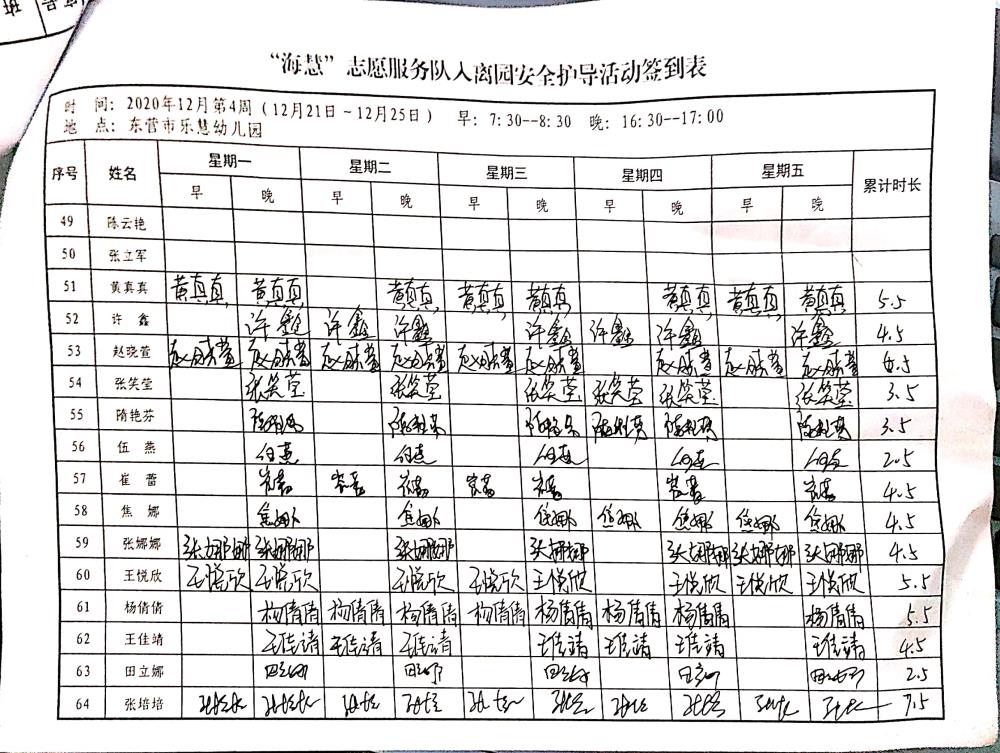 “海慧”志愿服务队入离园安全护导活动签到表
时 间: 2020年12月第4周(12月21日~12月25日) 早: 7:30--8:30 晚: 16:30--17:00
地 点: 东营市乐慧幼儿园
序号 姓名 星期一 星期二 星期三 星期四 星期五 累计时长
早 晚 早 晚 早 晚 早 晚 早 晚
49 陈云艳
50 张立军
51 黄真真 黄真真 黄真真 黄真真 黄真真 黄真真 黄真真 黄真真 黄真真 5.5
52 许鑫 许鑫 许鑫 许鑫 许鑫 许鑫 许鑫 许鑫 4.5
53 赵晓萱 赵晓萱 赵晓萱 赵晓萱 赵晓萱 赵晓萱 赵晓萱 赵晓萱 赵晓萱 赵晓萱 6.5
54 张笑莹 张笑莹 张笑莹 张笑莹 张笑莹 张笑莹 张笑莹 3.5
55 隋艳芬 隋艳芬 隋艳芬 隋艳芬 隋艳芬 隋艳芬 隋艳芬 3.5
56 伍燕 伍燕 伍燕 伍燕 伍燕 伍燕 2.5
57 崔蕾 崔蕾 崔蕾 崔蕾 崔蕾 崔蕾 崔蕾 崔蕾 4.5
58 焦娜 焦娜 焦娜 焦娜 焦娜 焦娜 焦娜 焦娜 4.5
59 张娜娜 张娜娜 张娜娜 张娜娜 张娜娜 张娜娜 张娜娜 张娜娜 4.5
60 王悦欣 王悦欣 王悦欣 王悦欣 王悦欣 王悦欣 王悦欣 王悦欣 王悦欣 5.5
61 杨倩倩 杨倩倩 杨倩倩 杨倩倩 杨倩倩 杨倩倩 杨倩倩 杨倩倩 杨倩倩 5.5
62 王佳靖 王佳靖 王佳靖 王佳靖 王佳靖 王佳靖 王佳靖 王佳靖 4.5
63 田立娜 田立娜 田立娜 田立娜 田立娜 田立娜 2.5
64 张培培 张培培 张培培 张培培 张培培 张培培 张培培 张培培 张培培 张培培 张培培 7.5